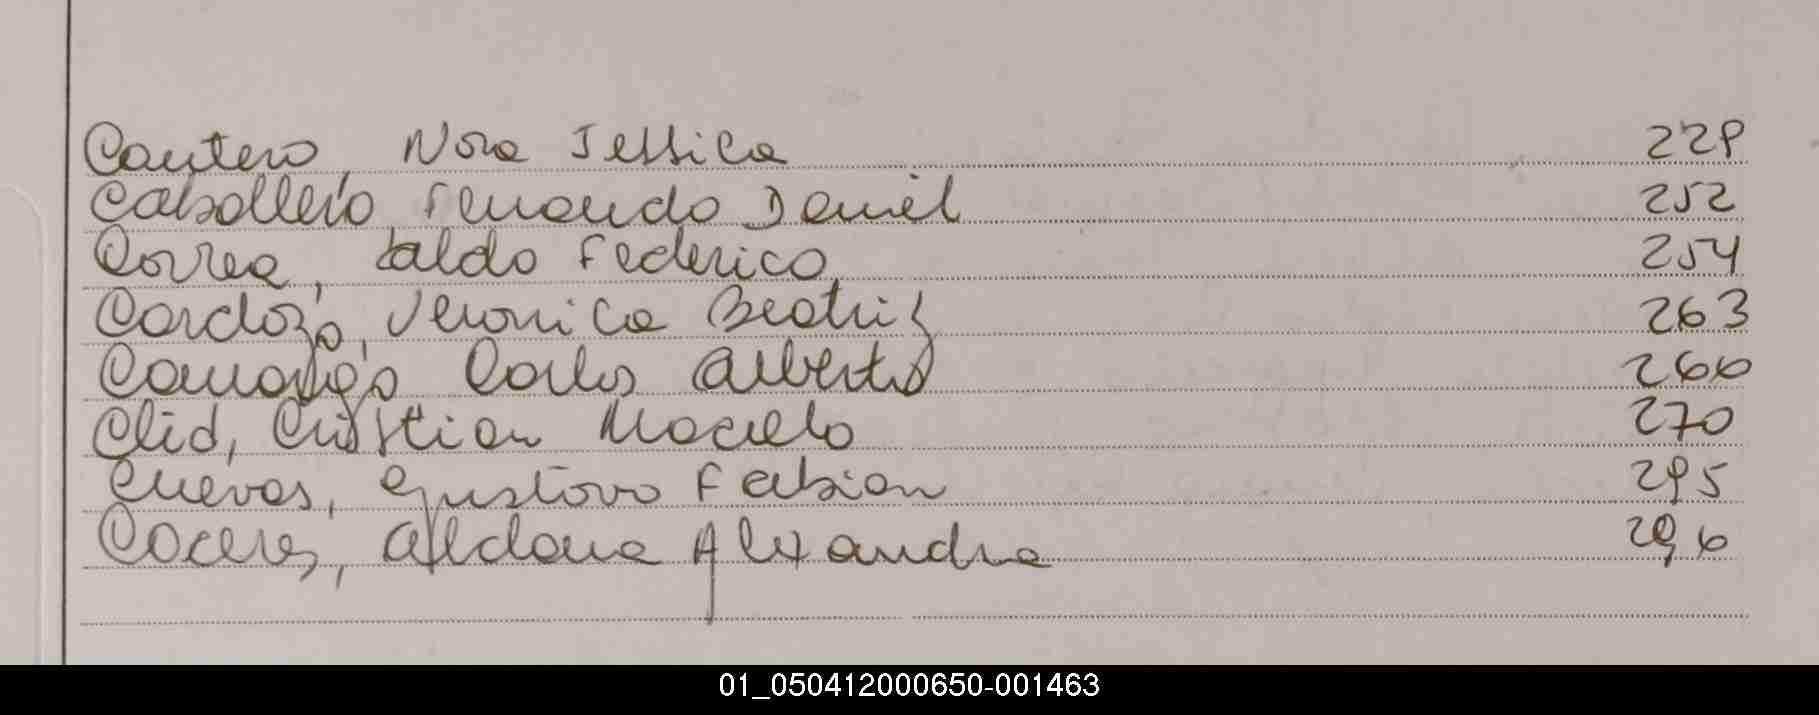 Cantero, Nora Jessica 229
Caballero Fernando Daniel 252
Correa, Baldo Federico 254
Cardozo, Veronica Beatriz 263
Camargo Carlos Alberto 266
Clid, Cristian Marcelo 270
Cuevas, Gustavo Fabian 295
Caceres, Aldana Alexandra 296
01_050412000650-001463